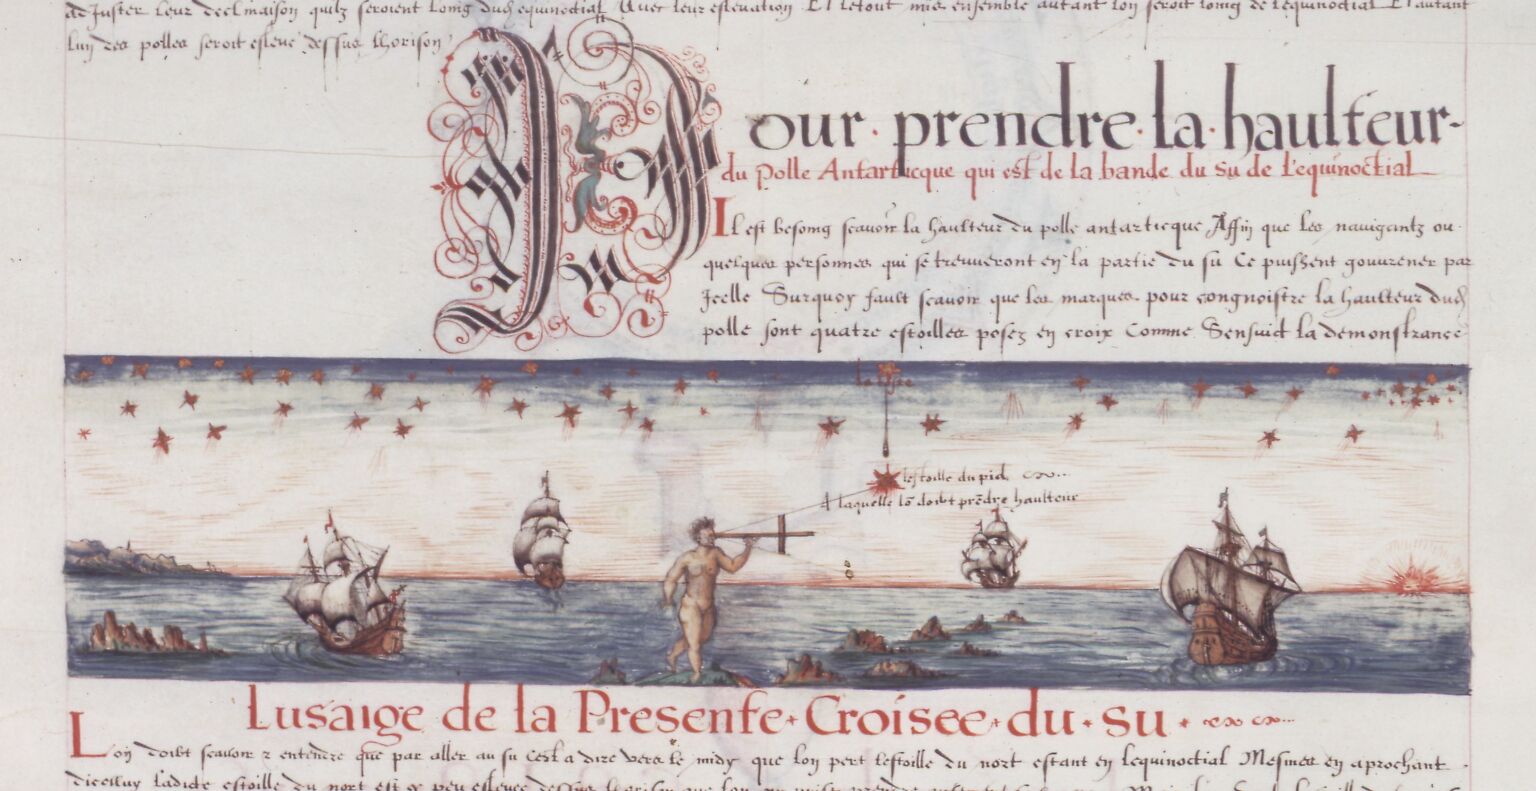 de Juster leur declinaison quilz seroient loing dud equinoctial Avec leur eslevation Et letout mis ensemble autant lon seroit loing de lequinoctial Et autant
lun des polles seroit esleve dessus lhorison
Pour · prendre · la · haulteur-
du Polle Antarticque qui est de la bande du su de l'equinoctial
Il est besoing scavoir la haulteur du polle antarticque Affin que les navigantz ou
quelques personnes qui se treuveront en la partie du su Ce puissent gouverner par
Jcelle Surquoy fault scavoir que les marques pour congnoistre la haulteur dud
polle sont quatre estoilles posez en croix Comme Sensuict la demonstrance
la teste
lestoille du pid
A laquelle lō doibt prēdre haulteur
Lusaige de la Presente · Croisee · du · su ·
Lon doibt scavoir & entendre que par aller au su Cest a dire vers le midy que lon pert lestoille du nort estant en lequinoctial Mesmes en aprochant
dicelluy ladicte estoille du nort est sy peu eslevee dessus lhorison que lon